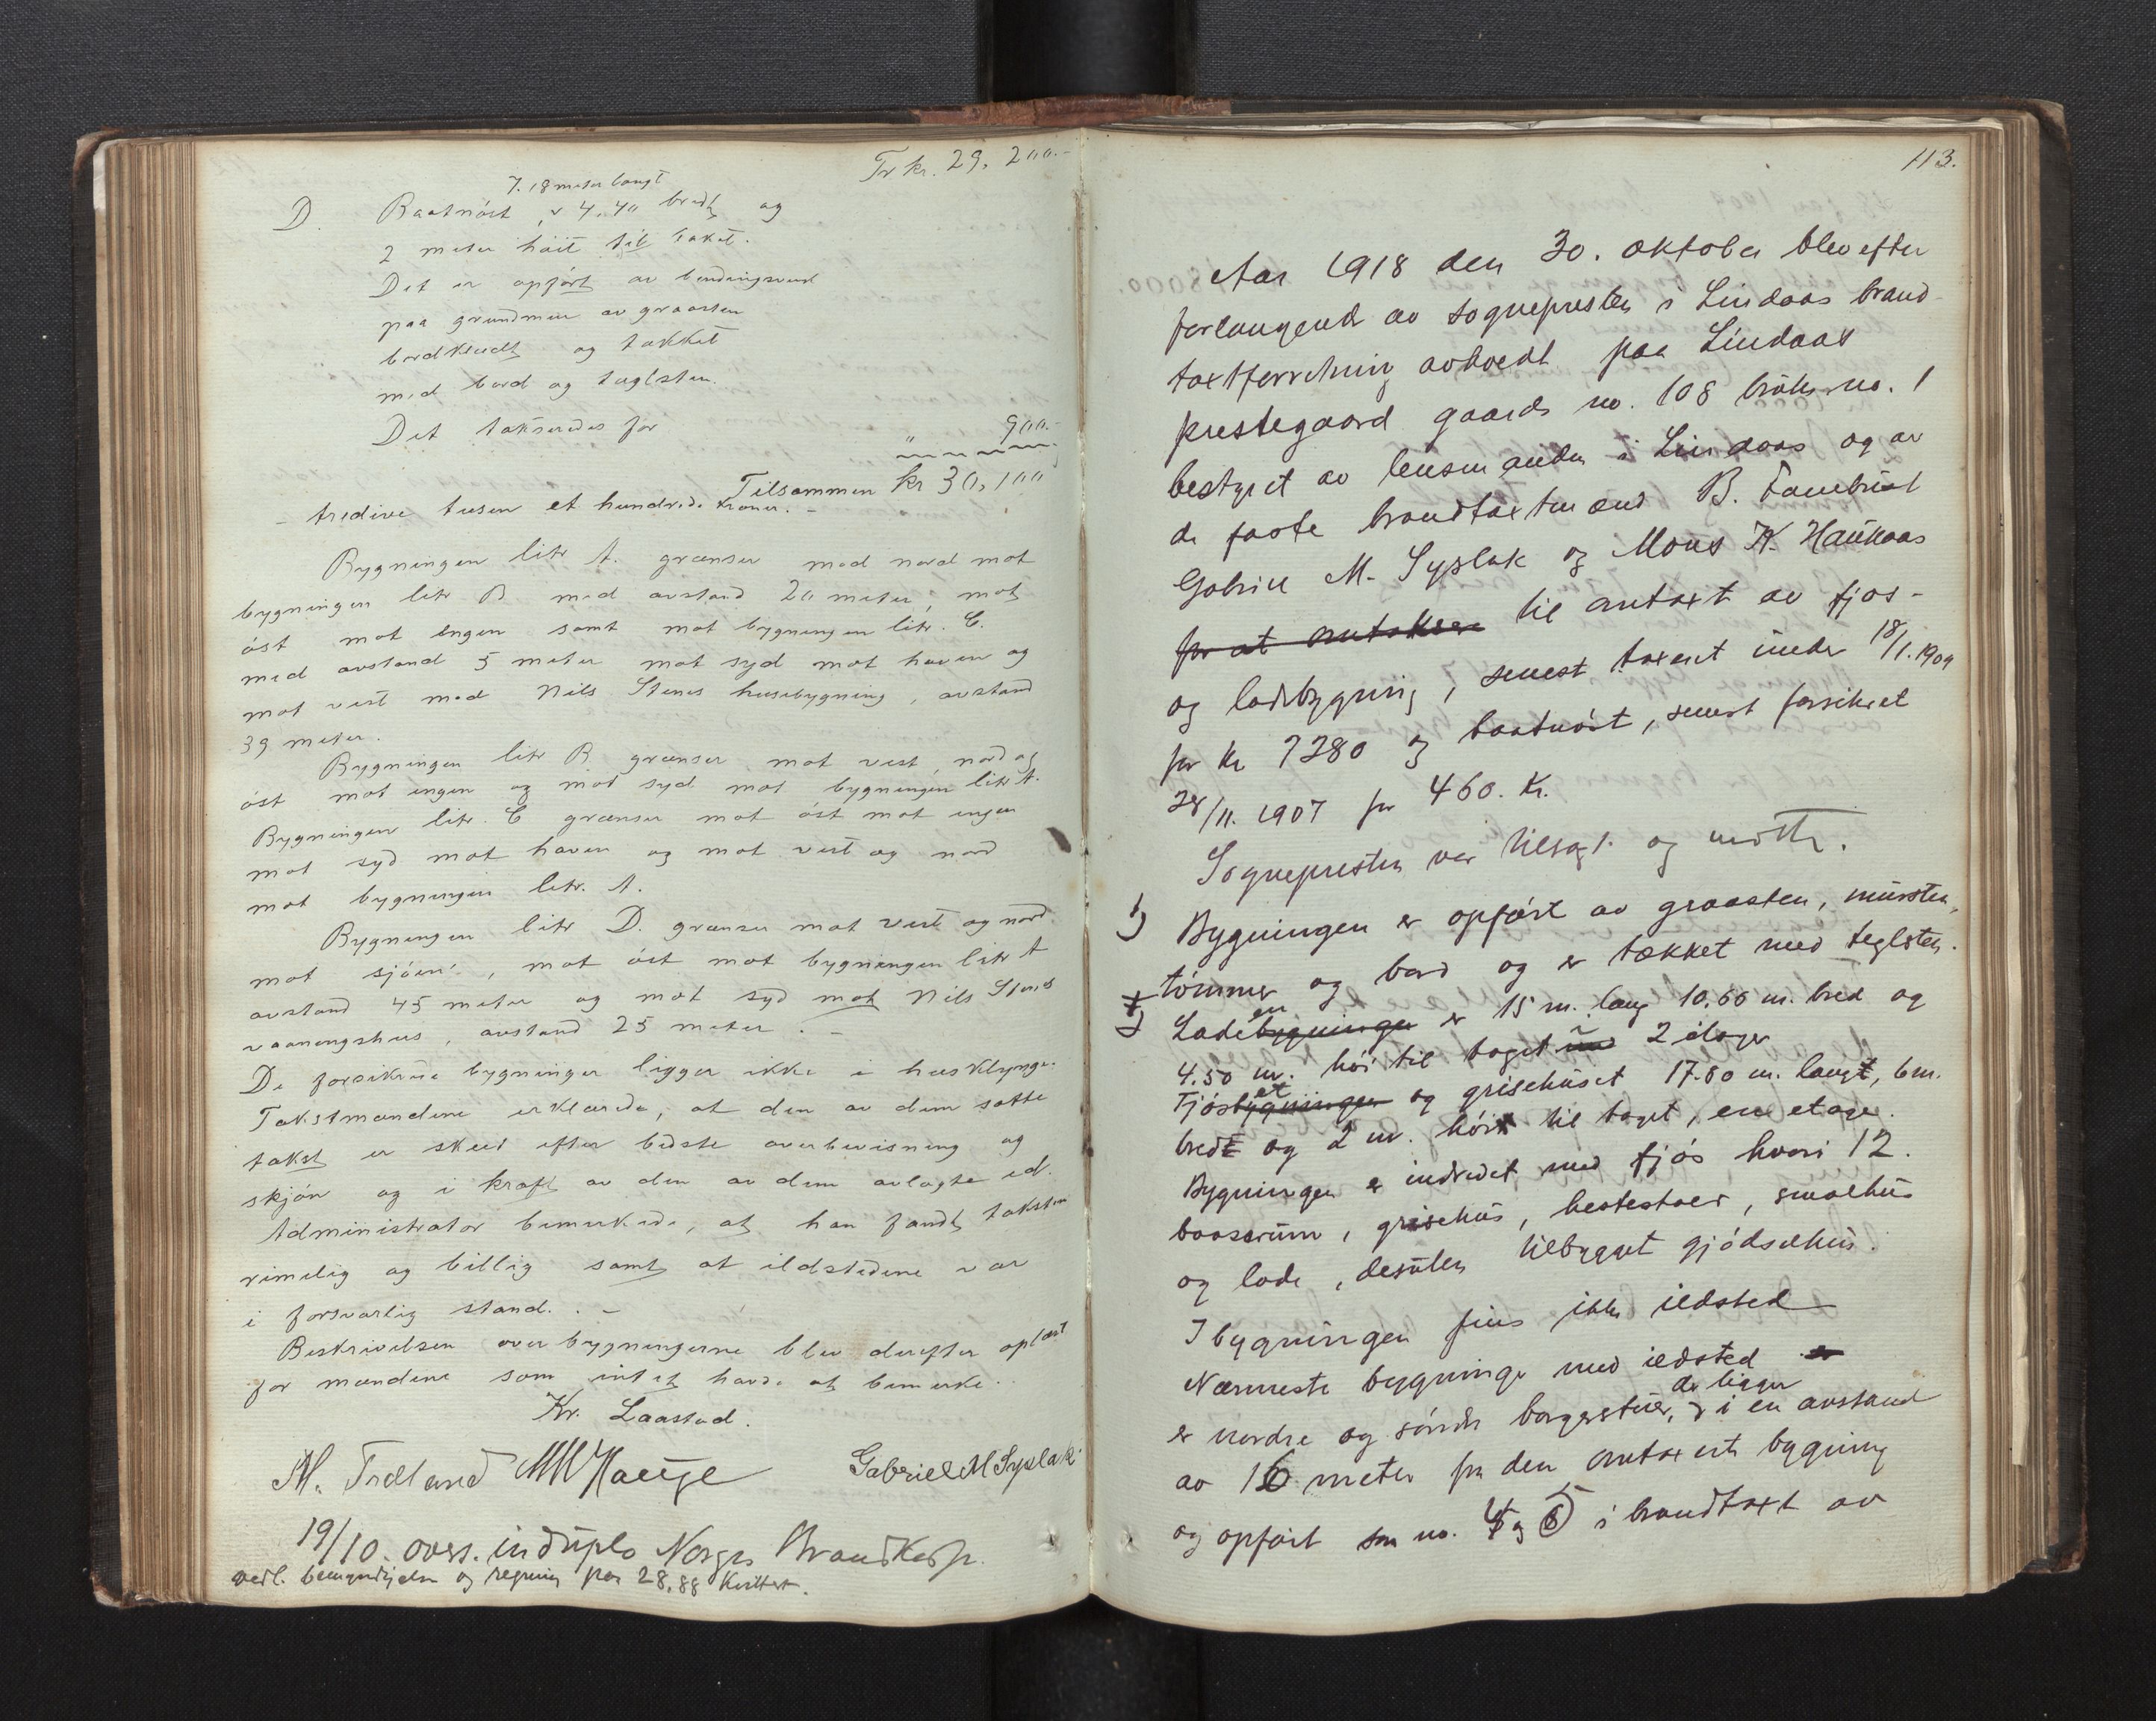 Tr kr. 29, 200.-
7.18 meter langt
D. Baatnöst, 4,40 bredt og
2 meter höit til taket.
Det er opfört av bindingsverk
paa grundmur av graasten
bordklædt og tækket
med bord og taglsten.
Det takseredes for " 900.-
Tilsammen kr 30,100
- tredive tusen et hundrede kroner. -
Bygningen litr A. grænser mod nord mot
bygningen litr B med avstand 20 meter, mot
öst mot engen samt mot bygningen litr. C.
med avstand 5 meter mot syd mot haven og
mot vest med Nils Stenes husebygning, avstand
39 meter.
Bygningen litr B. grænser mot vest, nord og
öst mot engen og mot syd mot bygningen litr A.
Bygningen litr. C grænser mot öst mot engen
mot syd mot haven og mot vest og nord
mot bygningen litr. A.
Bygningen litr D. grænser mot vest og nord
mot sjöen, mot öst mot bygningen litr A
avstand 45 meter og mot syd mot Nils Stenes
vaaningshus, avstand 25 meter. -
De forsikrede bygninger ligger ikke i husklynge.
Takstmændene erklærede, at den av dem satte
takst er skeed efter bedste overbevisning og
skjön og i kraft av den av dem avlagte ed.
Administrator bemerkede, at han fandt taksten
rimelig og billig samt at ildstedene var
i forsvarlig stand. . -
Beskrivelsen over bygningerne blev derefter oplæst
for mændene som intet havde at bemerke.
Kr. Laastad.
M. Fredland M M Hauge Gabriel M Syslak
19/10. overs. in duplo Norges Brandkasse.
vedl. bemyndigelse og regning paa 28,88 kvittert.
113.
Aar 1918 den 30. oktober blev efter
forlangende av sognepresten i Lindaas brand-
taxtforretning avholdt paa Lindaas
prestegaard gaards no. 108 bruks no. 1
bestyret av lensmanden i Lindaas og av
de faste brandtaxtmænd B. Fanebust
Gabriel M. Syslak og Mons K. Haukaas
for at omtaksere til omtaxt av fjos-
og ladebygning, senest taxeret under 18/1.1909
for kr 7280 og baatnöst, senest forsikret
28/11. 1907 for 460. Kr.
Sognepresten var tilsagt og mötte.
1) Bygningen er opfört av graasten, mursten,
tömmer og bord og er tækket med teglsten.
Ladebygningen en er 15 m. lang 10.60 m. bred og
4.50 m. höi til taget 2 etager
Fjösbygningen et og grisehuset 17.80 m. langt, 6 m.
bredt og 2 m. höit til taget, en etage.
Bygningen er indredet med fjös hvori 12.
baasrum, grisehus, hestestald, smalehus
og lade, desuten tilbygget gjödselhus.
I bygningen fins ikke ildsted
Nærmeste bygninge med ildsted
er nordre og söndre borgerstuer, de ligger i en avstand
av 16 meter fra den omtaxerte bygning
og opfört som no. 4 og 5 i brandtaxt av